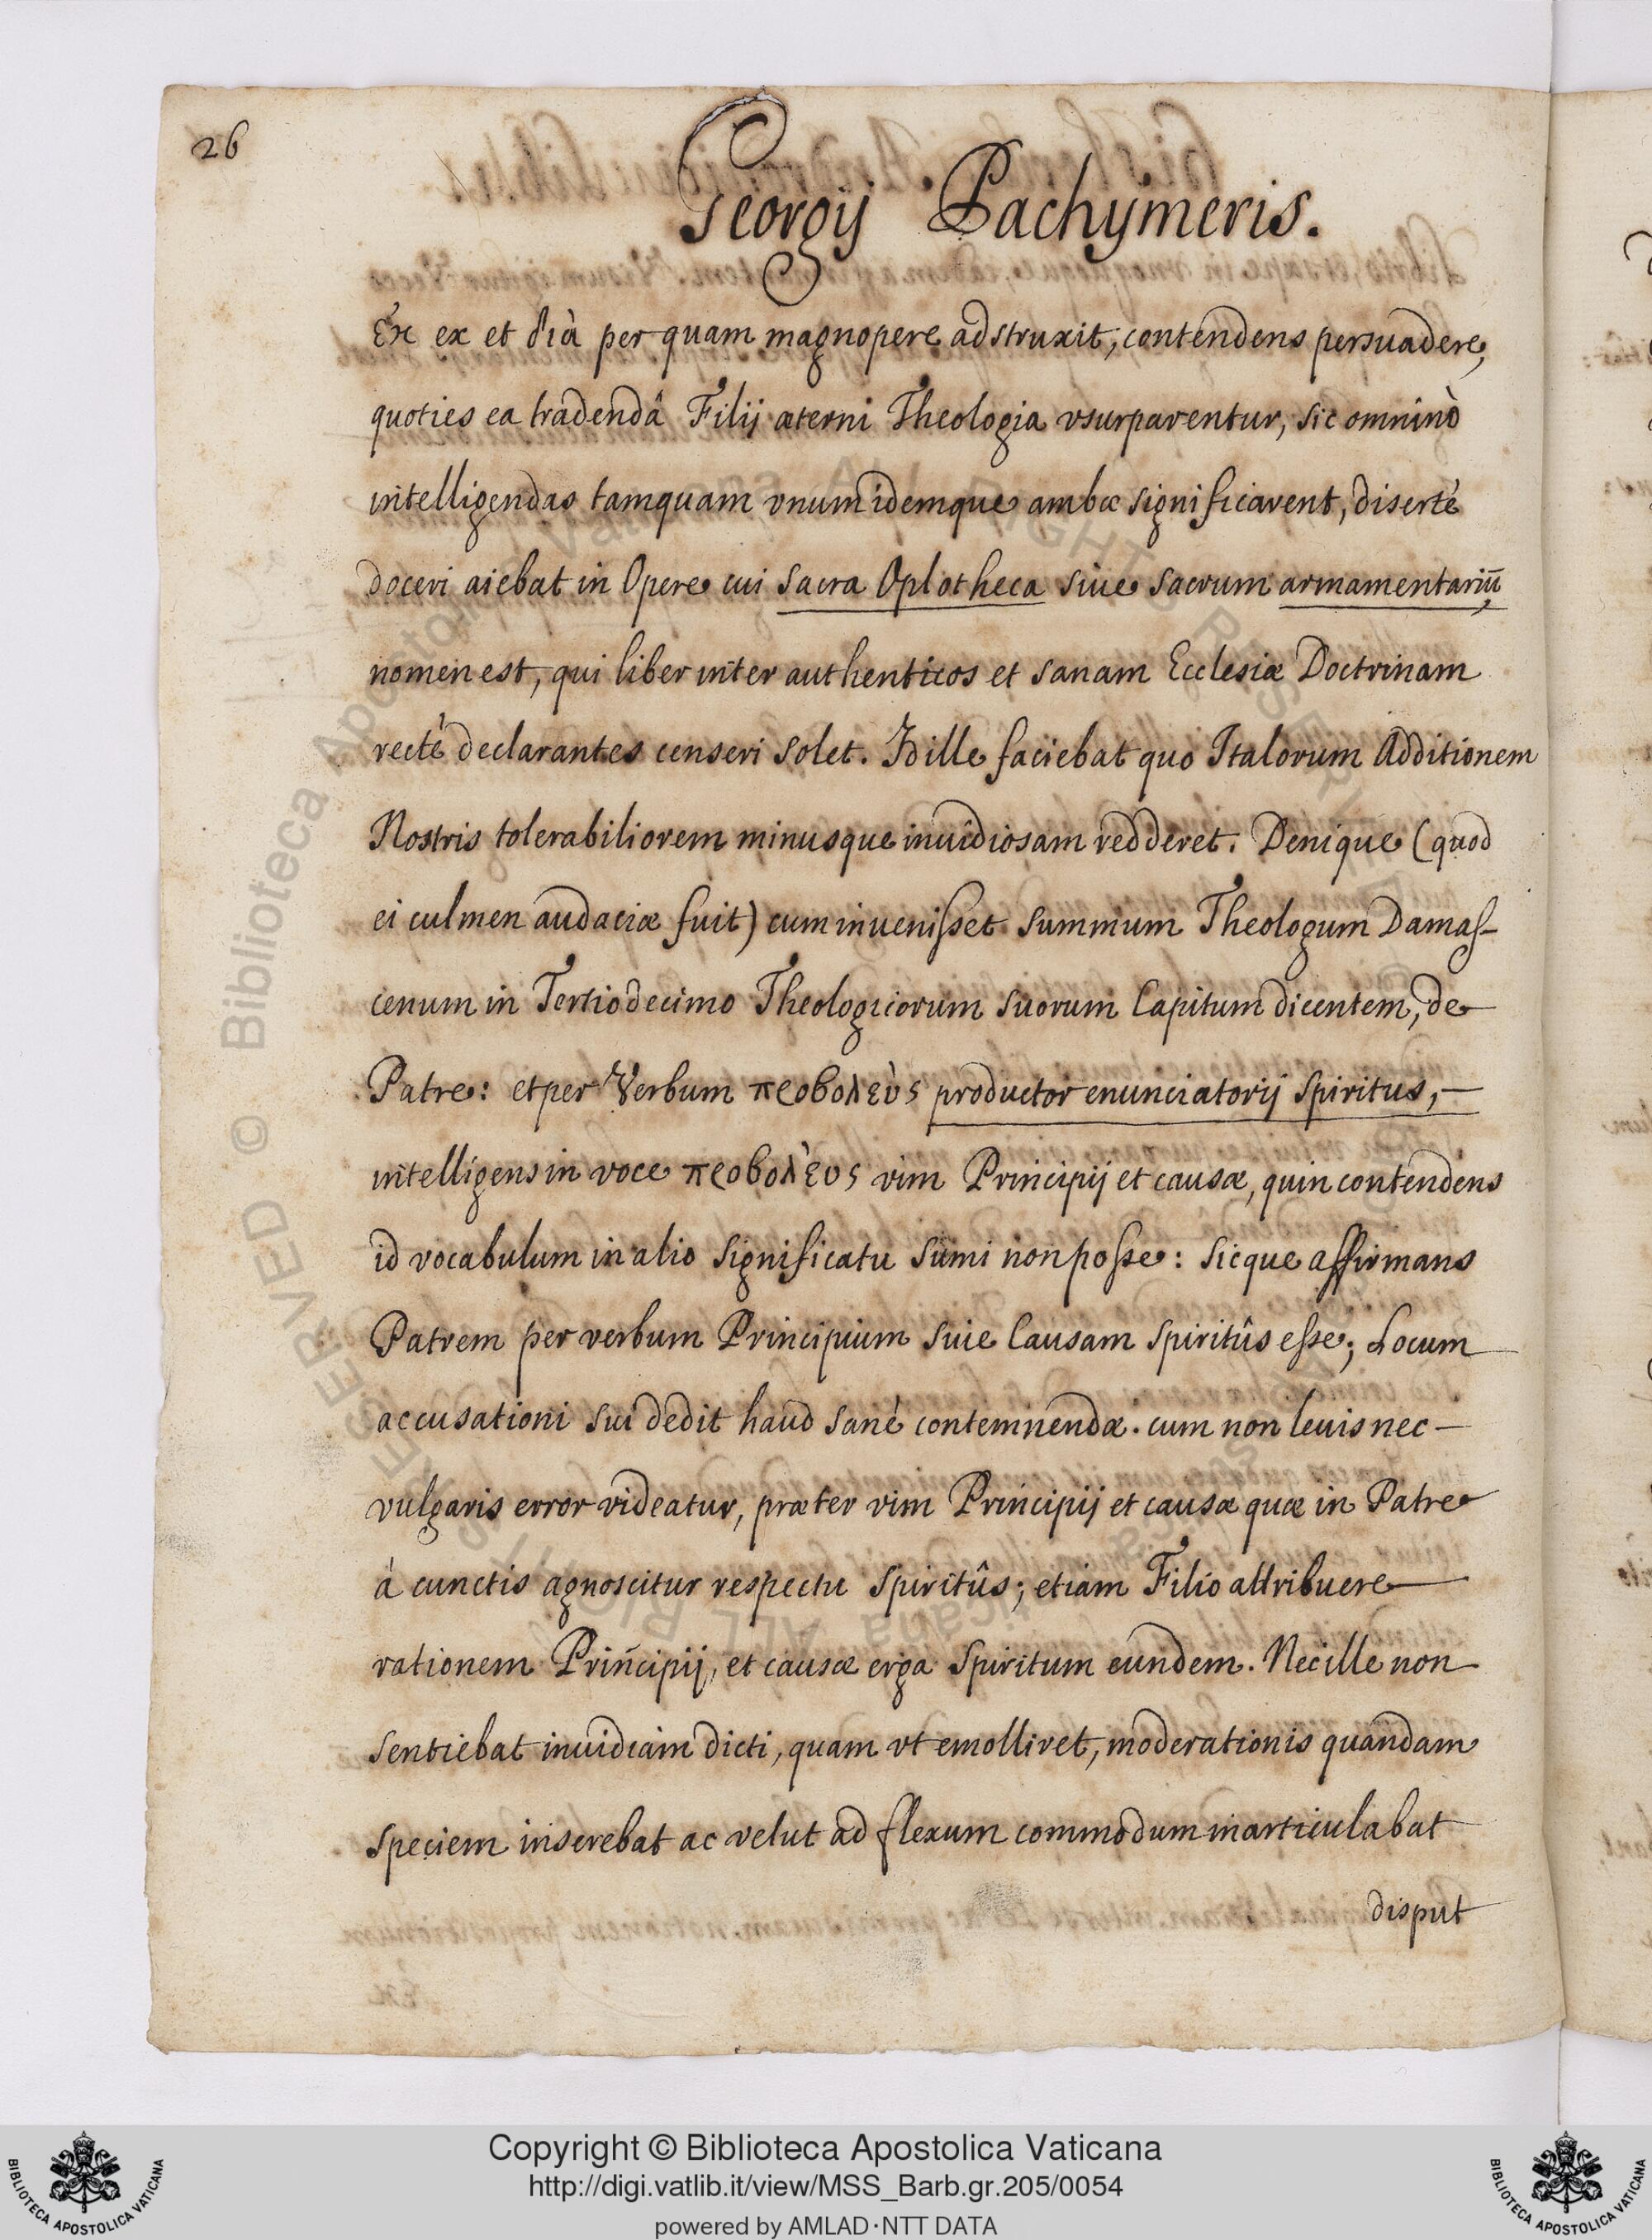 26
Georgij Pachymeris.
Ἐκ ex et διὰ per quam magnopere adstruxit, contendens persuadere,
quoties ea tradendâ Filij æterni Theologia vsurparentur, sic omninò
intelligendas tamquam vnum idemque ambæ significarent, disertè
doceri aiebat in Opere cui sacra Oplotheca siue sacrum armamentariũ,
nomen est, qui liber inter authenticos et sanam Ecclesiæ Doctrinam
rectè declarantes censeri solet. Id ille faciebat quo Italorum Additionem
Nostris tolerabiliorem minusque inuidiosam redderet. Denique (quod
ei culmen audaciæ fuit) cum inuenisset summum Theologum Damas-
cenum in Tertiodecimo Theologicorum suorum Capitum dicentem, de
Patre: et per Verbum προβολεὺς productor enunciatorij spiritus,
intelligens in voce προβολὲυς vim Principij et causæ, quin contendens
id vocabulum in alio significatu sumi non posse: sicque affirmans
Patrem per verbum Principium siue Causam spiritûs esse; Locum
accusationi sui dedit haud sanè contemnendæ. cum non leuis nec
vulgaris error videatur, præter vim Principij et causæ quæ in Patre
à cunctis agnoscitur respectu spiritûs; etiam Filio attribuere
rationem Principij, et causæ erga spiritum eundem. Nec ille non
sentiebat inuidiam dicti, quam vt emolliret, moderationis quandam
speciem inserebat ac velut ad flexum commodum inarticulabat
disput
© Biblioteca Apostolica Vaticana ALL RIGHTS RESERVED
Copyright © Biblioteca Apostolica Vaticana
http://digi.vatlib.it/view/MSS_Barb.gr.205/0054
powered by AMLAD·NTT DATA
BIBLIOTECA APOSTOLICA VATICANA
BIBLIOTECA APOSTOLICA VATICANA